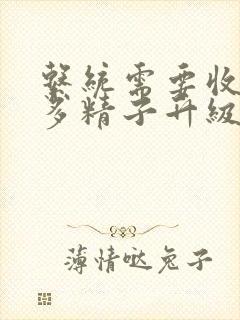 繫統需要收
多精子升級
薄情哒兔子